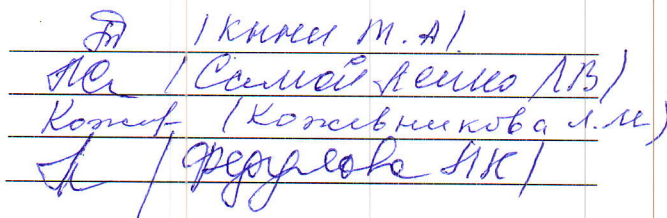 / Кнни Т.А /
/ Самойленко ЛВ /
Кожев / Кожевникова л.м /
/ Федулова НК /